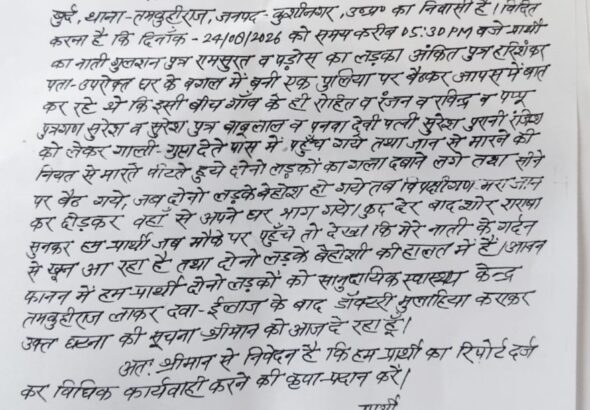 खुर्द, थाना-तमकुहीराज, जनपद-कुशीनगर, उ०प्र० का निवासी है। विदित
करना है कि दिनांक-24/06/2026 को समय करीब 05:30 PM बजे प्रार्थी
का नाती गुलशन पुत्र रामसुरत व पड़ोस का लड़का अंकित पुत्र हरिशंकर
पता-उपरोक्त घर के बगल में बनी एक पुलिया पर बैठकर आपस में बात
कर रहे थे कि इसी बीच गाँव के ही रोहित व रंजन व रविन्द्र व पप्पू
पुत्रगण सुरेश व सुरेश पुत्र बाबूलाल व पनवा देवी पत्नी सुरेश पुरानी रंजिश
को लेकर गाली-गुप्ता देते पास में पहुँच गये तथा जान से मारने की
नियत से मारते पीटते हुये दोनो लड़कों का गला दबाने लगे तथा सीने
पर बैठ गये, जब दोनो लड़के बेहोश हो गये तब विपक्षीगण मरा जान
कर छोड़कर वहाँ से अपने घर भाग गये। कुछ देर बाद शोर शराबा
सुनकर हम प्रार्थी जब मौके पर पहुँचे तो देखा कि मेरे नाती के गर्दन
से खून आ रहा है तथा दोनो लड़के बेहोशी की हालत में हैं। आनन
फानन में हम प्रार्थी दोनो लड़कों को सामुदायिक स्वास्थ्य केन्द्र
तमकुहीराज लाकर दवा-ईलाज के बाद डॉक्टरी मुलाहिया कराकर
उक्त घटना की सूचना श्रीमान को आज दे रहा हूँ।
अतः श्रीमान से निवेदन है कि हम प्रार्थी का रिपोर्ट दर्ज
कर विधिक कार्यवाही करने की कृपा-प्रदान करें।
प्रार्थी